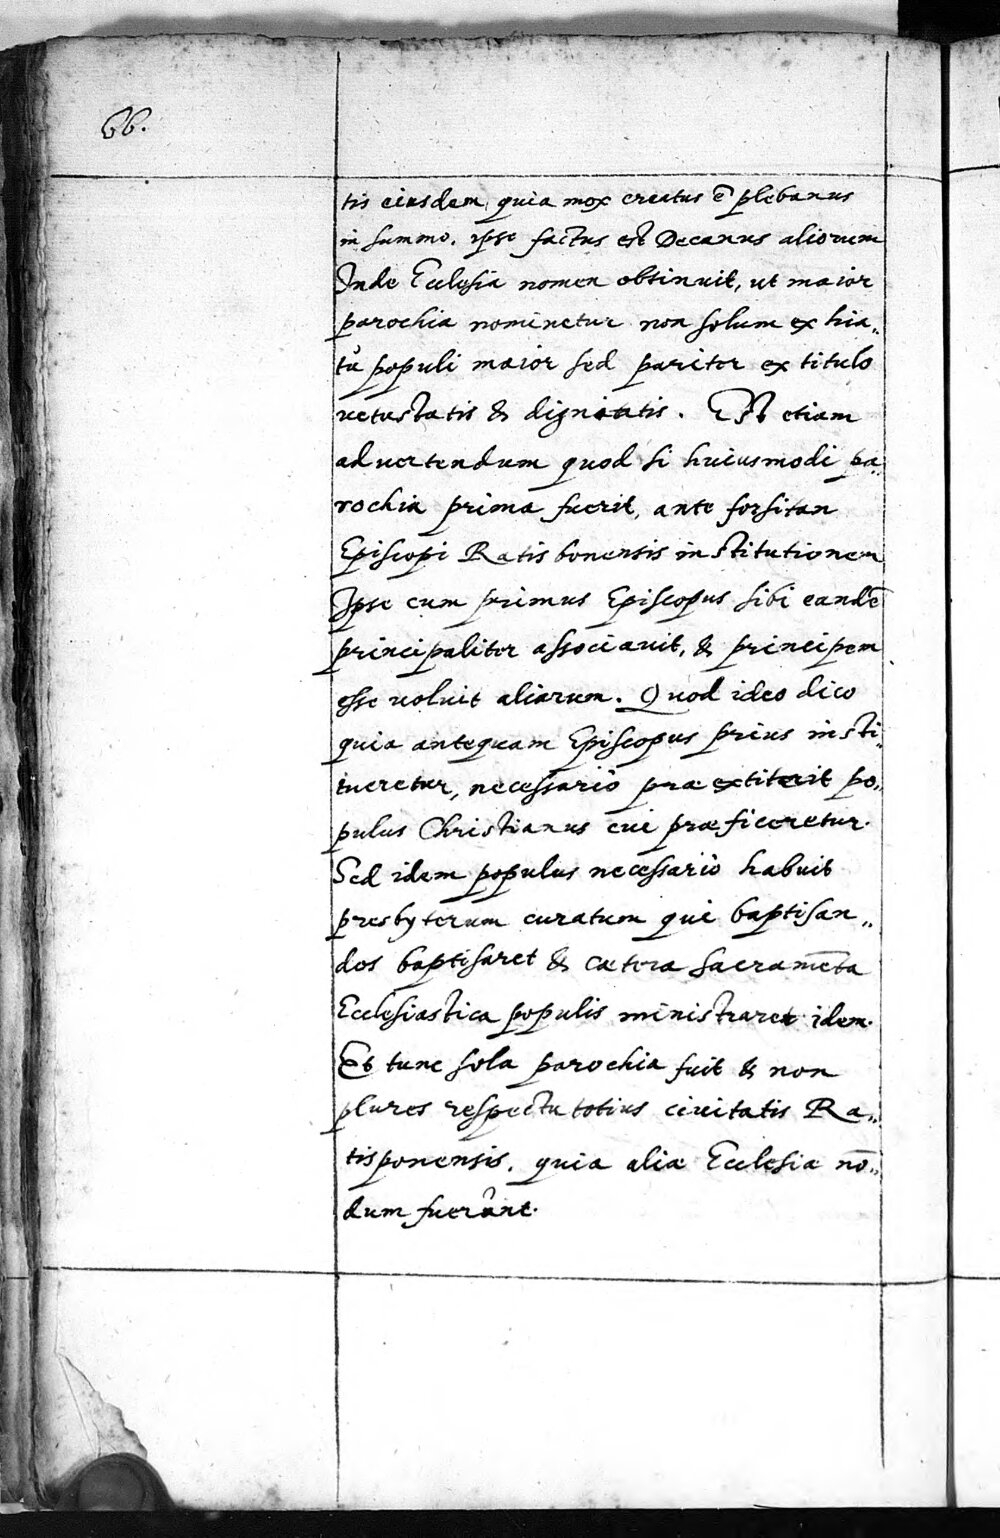 66.
tis eiusdem, quia mox creatus ē plebanus
in summo. ipse factus est Decanus aliorum
Inde Ecclesia nomen obtinuit, ut maior
parochia nominetur non solum ex hia„
tu populi maior sed pariter ex titulo
uetustatis & dignitatis. Est etiam
aduertendum quod si huiusmodi pa„
rochia prima fuerit, ante forsitan
Episcopi Ratisbonensis institutionem
Ipse cum primus Episcopus sibi eandē
principaliter associauit, & principem
esse uoluit aliarum. Quod ideo dico
quia antequam Episcopus prius insti„
tueretur, necessariò præextiterit po„
pulus Christianus cui præficeretur.
Sed idem populus necessariò habuit
presbyterum curatum qui baptisan„
dos baptisaret & cætera sacramēta
Ecclesiastica populis ministraret idem.
Et tunc sola parochia fuit & non
plures respectu totius ciuitatis Ra„
tisponensis, quia aliæ Ecclesia nō„
dum fuerûnt.